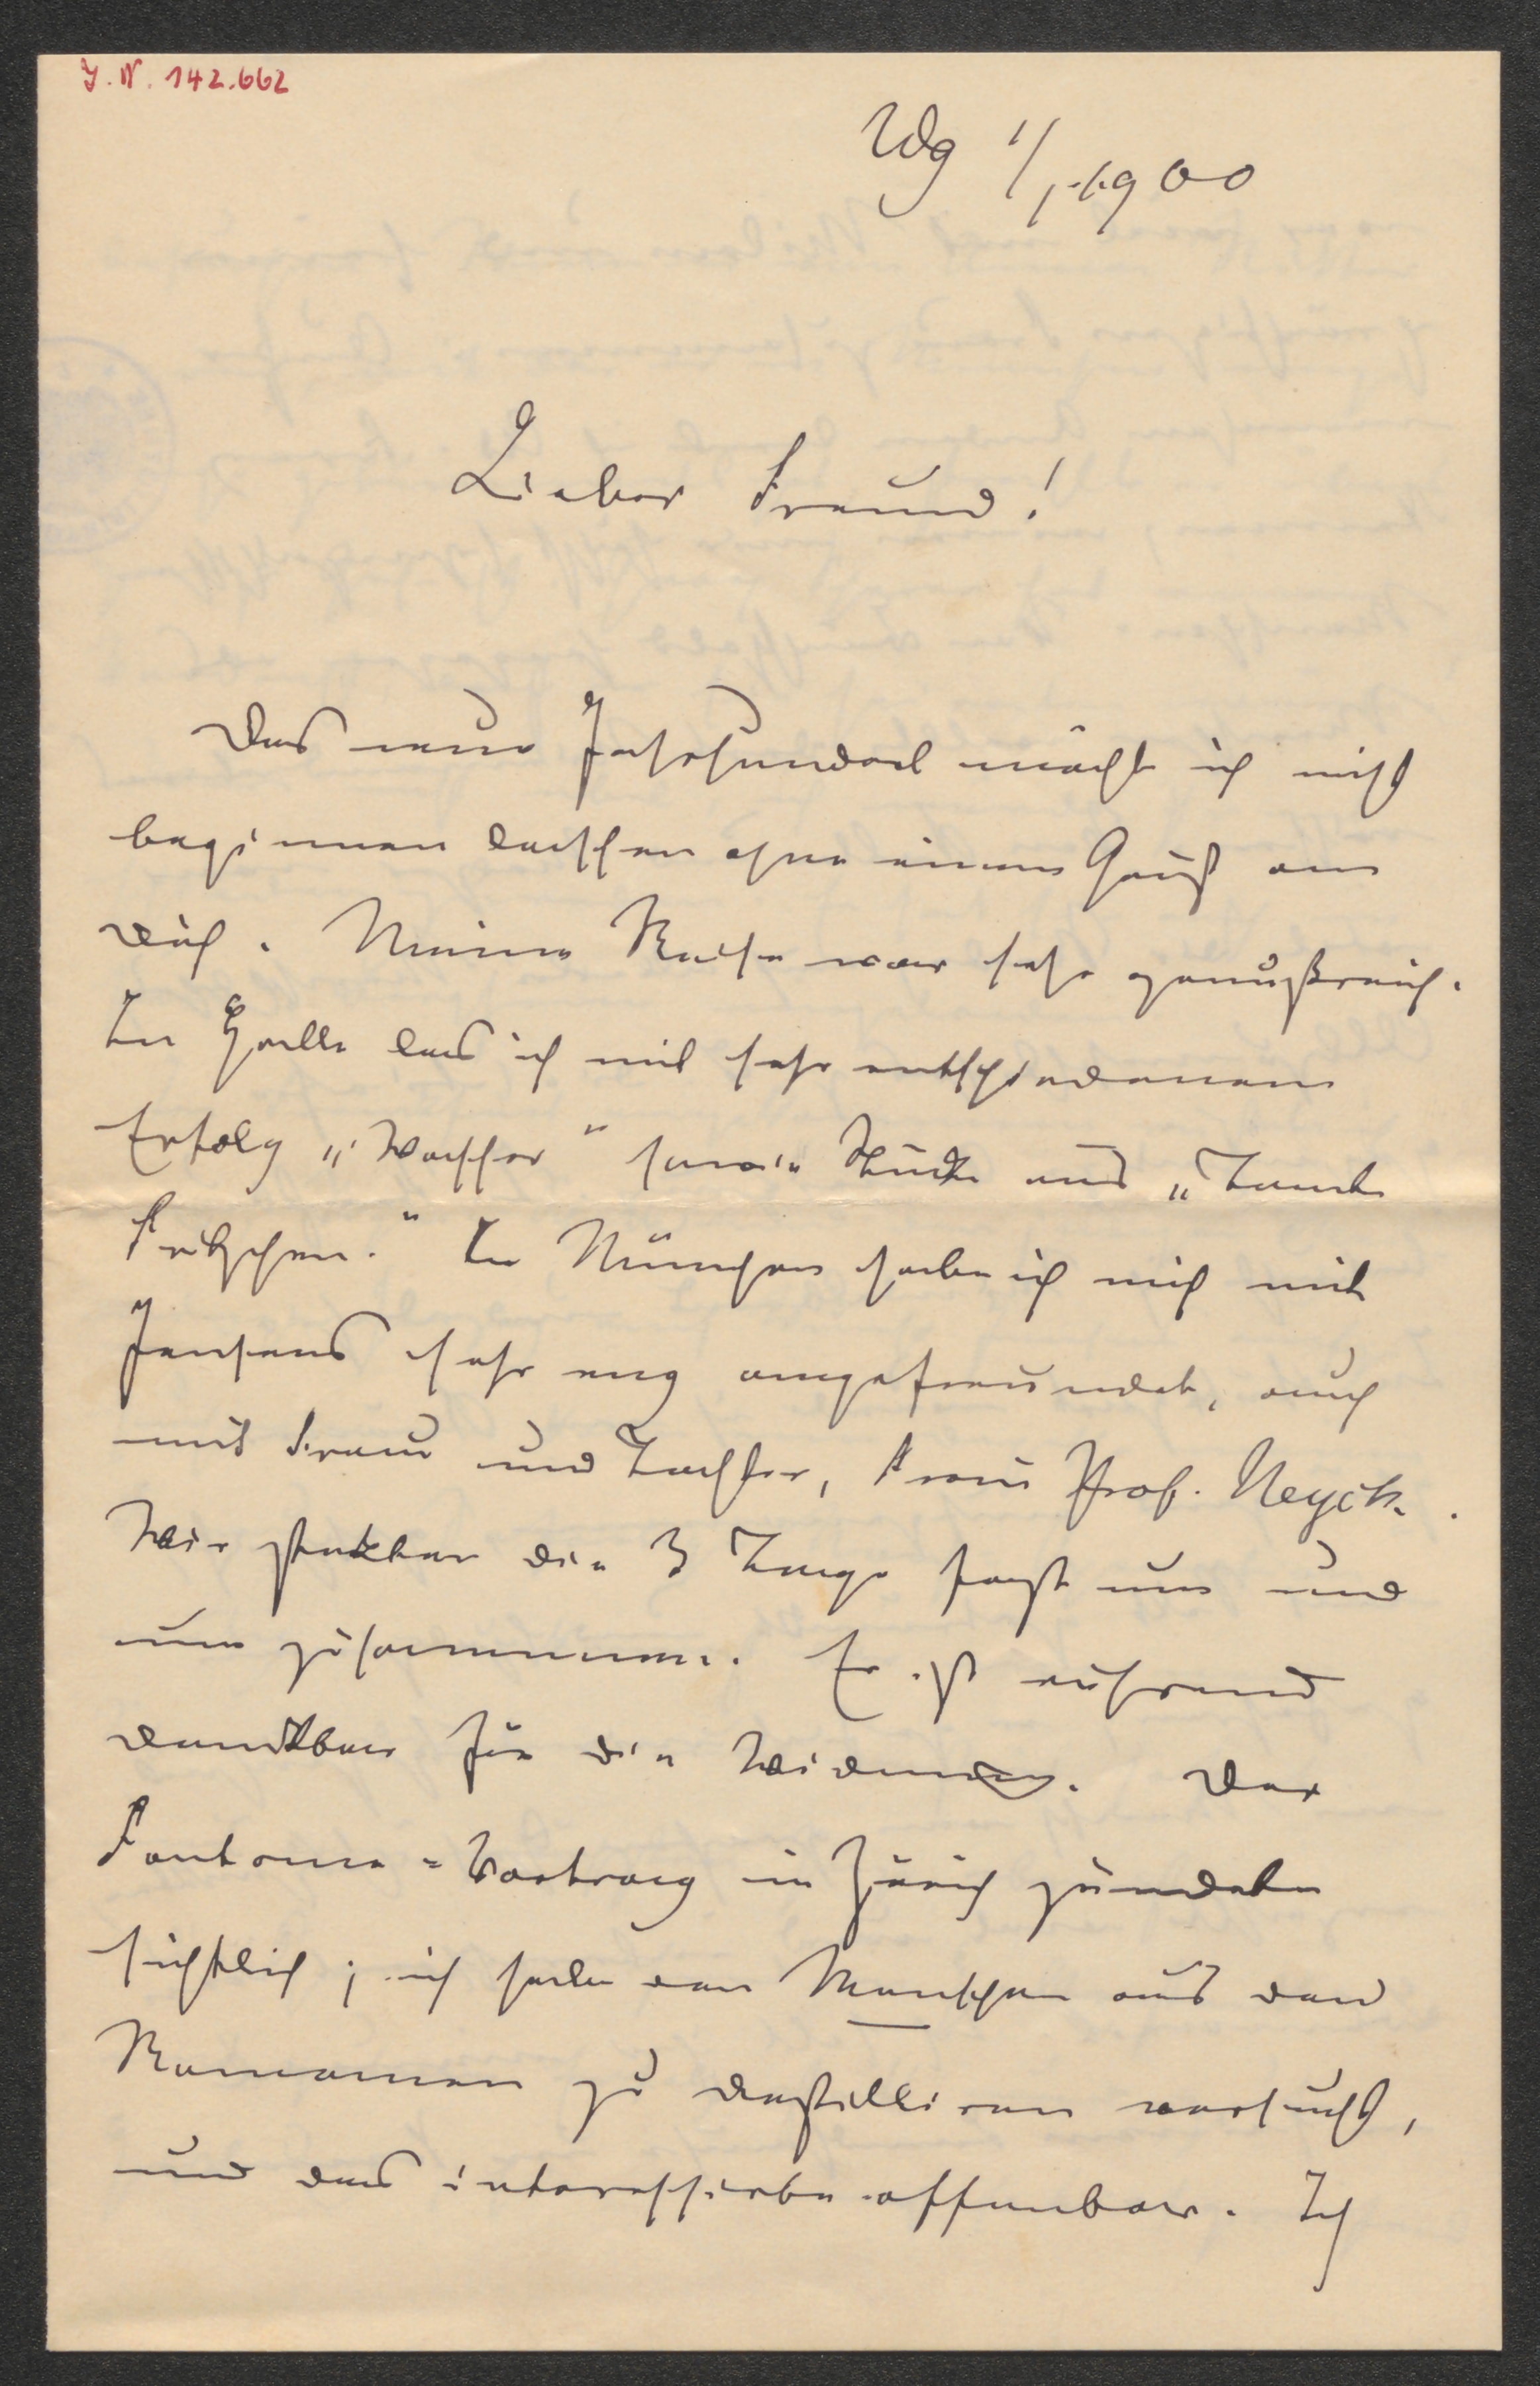 J. N. 142.662
Wg 1/1. 1900
Lieber Freund!
Das neue Jahrhundert möcht ich nicht
beginnen lassen ohne einen Gruß an
dich. Meine Reise war sehr genußreich.
In Halle las ich mit sehr entschiedenem
Erfolg „Wasser“ sowie Stücke aus „Tante
Fritzchen.“ In München habe ich mich mit
Jensens sehr eng angefreundet, auch
mit Frau und Tochter, Frau Prof. Heyck.
Wir steckten die 3 Tage fast um und
um zusammen. Er ist rührend
dankbar für die Widmung. Der
Fontane-Vortrag in Zürich zündete
sichtlich; ich habe den Menschen aus den
Romanen zu destilliren versucht,
und das interessirte offenbar. Ich